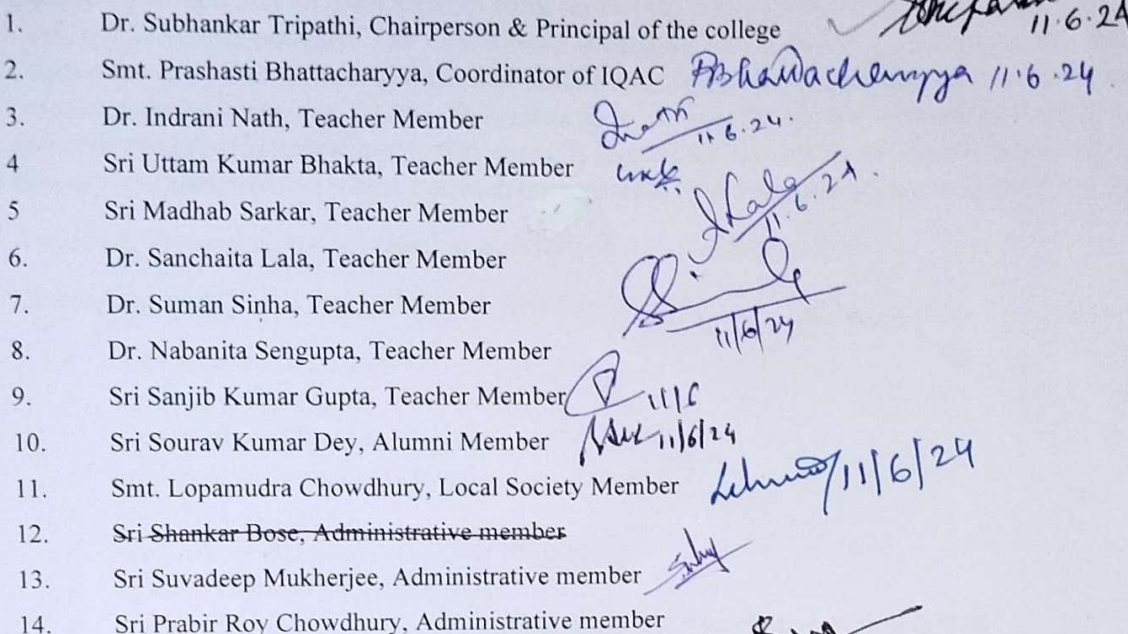 1. Dr. Subhankar Tripathi, Chairperson & Principal of the college 11.6.24
2. Smt. Prashasti Bhattacharyya, Coordinator of IQAC PBhattacharyya 11.6.24
3. Dr. Indrani Nath, Teacher Member 11.6.24.
4 Sri Uttam Kumar Bhakta, Teacher Member
5 Sri Madhab Sarkar, Teacher Member 11.6.24.
6. Dr. Sanchaita Lala, Teacher Member
7. Dr. Suman Sinha, Teacher Member 11/6/24
8. Dr. Nabanita Sengupta, Teacher Member
9. Sri Sanjib Kumar Gupta, Teacher Member 11/6
10. Sri Sourav Kumar Dey, Alumni Member 11/6/24
11. Smt. Lopamudra Chowdhury, Local Society Member 11/6/24
12. Sri Shankar Bose, Administrative member
13. Sri Suvadeep Mukherjee, Administrative member
14. Sri Prabir Roy Chowdhury, Administrative member